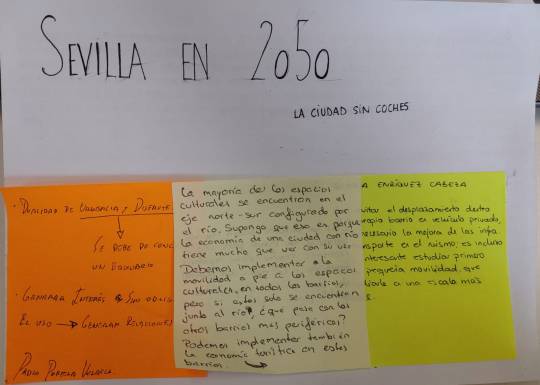 SEVILLA EN 2050
LA CIUDAD SIN COCHES
· DUALIDAD DE
SE DEBE DE
UN EQUILIBRIO
· GENERAR INTERÉS SIN
EL USO → GENERAR RELACIONES
PABLO
La mayoría de los espacios
culturales se encuentran en el
eje norte-sur configurado por
el río. Supongo que eso es porque
la economía de una ciudad con río
tiene mucho que ver con su
Debemos implementar la
movilidad a pie a los espacios
culturales, en todos los barrios,
pero si estos solo se encuentran
junto al río, ¿qué pasa con los
otros barrios más periféricos?
Podemos implementar también
la economía turística en estos
barrios.
A ENRÍQUEZ CABEZA
el desplazamiento dentro
barrio en vehículo privado,
necesario la mejora de las infra
es el mismo, es incluso
interesante estudiar primero
pequeña movilidad, que
a una escala más